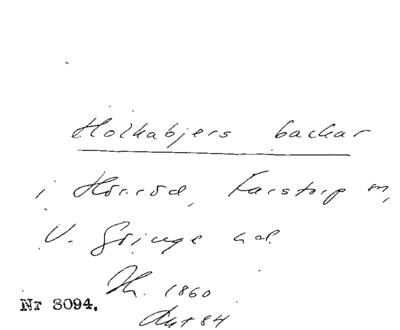 Holkabjers backar
i Hörröd, Farstorp sn,
V. Göinge hd.
1860
Nr 8094.
84